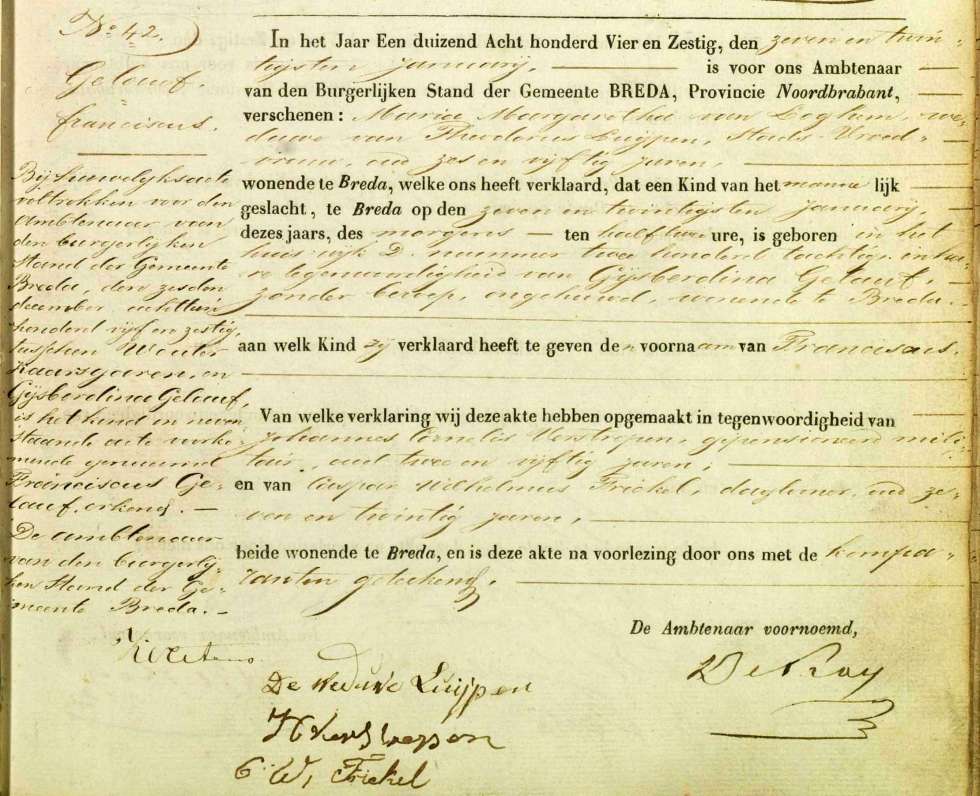 No 42.
Gelauf
franciscus.
Bij huwelijksacte
voltrokken voor den
Ambtenaar van
den burgerlijken
Stand der Gemeente
Breda, den zesden
december achttien
honderd vijf en zestig,
tusschen Wouter
Kaarsgaren, en
Gijsberdina Gelauf,
is het kind in neven
staande acte voorko
mende genaamd
Franciscus Ge-
lauf, erkend. —
De ambtenaar
van den burgerly-
ken Stand der Ge-
meente Breda. —
In het Jaar Een duizend Acht honderd Vier en Zestig, den zeven en twin-
tigsten januarij, is voor ons Ambtenaar
van den Burgerlijken Stand der Gemeente BREDA, Provincie Noordbrabant,
verschenen: Maria Margaretha van Loghem, we-
duwe van Theodorus Luijpen, Stads Vroed-
vrouw, oud zes en vijftig jaren,
wonende te Breda, welke ons heeft verklaard, dat een Kind van het manne lijk
geslacht, te Breda op den zeven en twintigsten januarij,
dezes jaars, des morgens — ten half twee ure, is geboren in het
huis wijk D. nummer twee honderd tachtig en ha-
re tegenwoordigheid van Gijsberdina Gelauf,
zonder beroep, ongehuwd, wonende te Breda.
aan welk Kind zij verklaard heeft te geven den voornaam van Franciscus.
Van welke verklaring wij deze akte hebben opgemaakt in tegenwoordigheid van
Johannes Cornelis Verstrepen, gepensioneerd mili-
tair, oud twee en vijftig jaren,
en van Caspar Wilhelmus Frickel, daglooner, oud ze-
ven en twintig jaren,
beide wonende te Breda, en is deze akte na voorlezing door ons met de kompa-
ranten geteekend.
De Ambtenaar voornoemd,
De Weduwe Luijpen
Verstrepen
C: W, Frickel